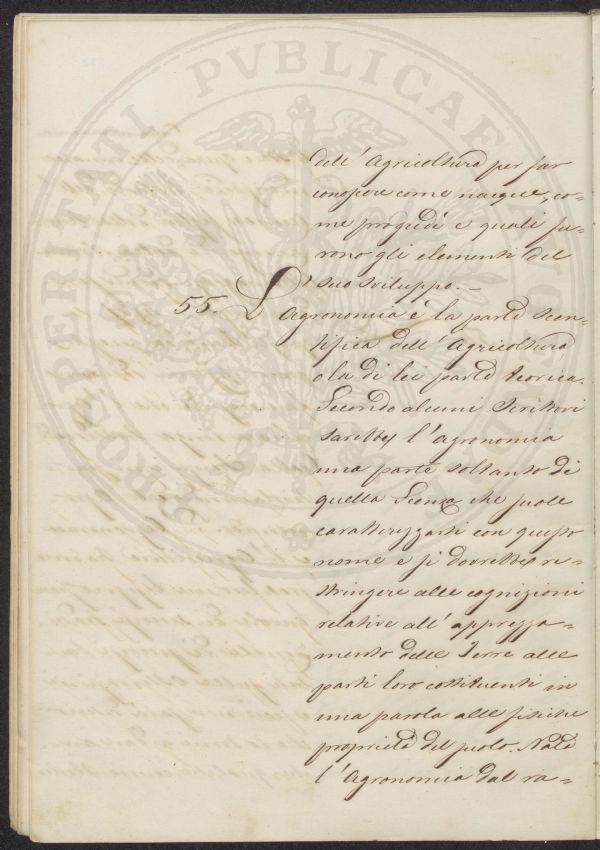 dell' Agricoltura per far
conoscere come nacque, co=
me progredì e quali fu=
rono gli elementi del
suo sviluppo. _
55. L' Agronomia è la parte scen=
tifica dell' Agricoltura
o la di lei parte teorica.
Secondo alcuni Scrittori
sarebbe l' Agronomia
una parte soltanto di
quella Scienza che suole
caratterizzarsi con questo
nome e si dovrebbe re=
stringere alle cognizioni
relative all' apprezza=
mento delle Terre alle
parti loro costituenti in
una parola alle fisiche
proprietà del suolo. Nata
l' Agronomia dal ra=
PROSPERITATI PVBLICAE